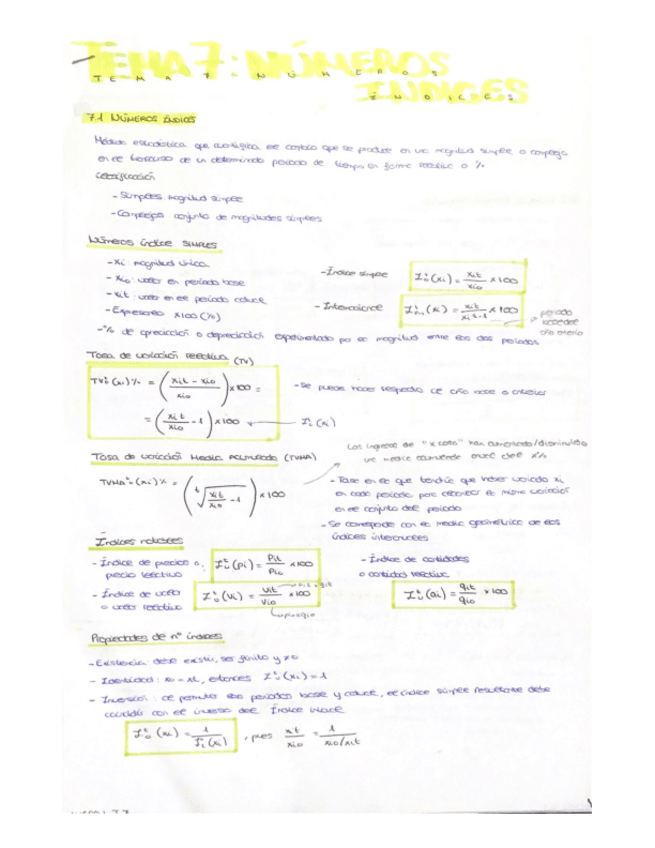 TEMA 7: NÚMEROS
TEMA 7 NÚMEROS
ÍNDICES
ÍNDICES
7.1 NÚMEROS ÍNDICES
Medida estadística que cuantifica el cambio que se produce en una magnitud simple o compleja
en el transcurso de un determinado periodo de tiempo en forma relativa o %
Clasificación
- Simples: magnitud simple
- Complejos conjunto de magnitudes simples
NÚMEROS ÍNDICE SIMPLES
- Xi: magnitud única
- Xio: valor en periodo base
- Xit: valor en el periodo actual
- Expresarlo x100 (%)
- Índice simple I₀ᵗ(xi) = xit/xio × 100
- Intercalaire xit/xi t-1 × 100
periodo
- % de apreciación o depreciación experimentado por la magnitud entre los dos periodos
Tasa de variación relativa (TV)
TV₀ᵗ(xi)% = ((xit - xio)/xio) × 100 =
= (xit/xio - 1) × 100
- Se puede hacer respecto al año base o anterior
Los ingresos de "x cosa" han aumentado/disminuido
una media anual del x%
TASA DE VARIACIÓN MEDIA ACUMULADA (TVMA)
TVMA (xi)% = (ᵗ√(xit/xio) - 1) × 100
- Tasa en la que tendría que haber variado xi
en cada periodo para obtener la misma variación
en el conjunto del periodo
- Se corresponde con la media geométrica de los
índices
Índices notables
- Índice de precios o
precio relativo
I₀ᵗ(pi) = Pit/Pio × 100
- Índice de valor
o valor relativo
I₀ᵗ(Vi) = Vit/Vio × 100
- Índice de cantidades
o cantidad relativa
I₀ᵗ(qi) = qit/qio × 100
Propiedades de nº índices
- Existencia: debe existir, ser finito y ≠0
- Identidad: entonces I₀ᵗ(xi) = 1
- Inversión: al permutar los periodos base y actual, el índice simple resultante debe
coincidir con el inverso del Índice
I₀ᵗ(xi) = 1/Iₜ⁰(xi), pues xit/xio = 1/(xio/xit)